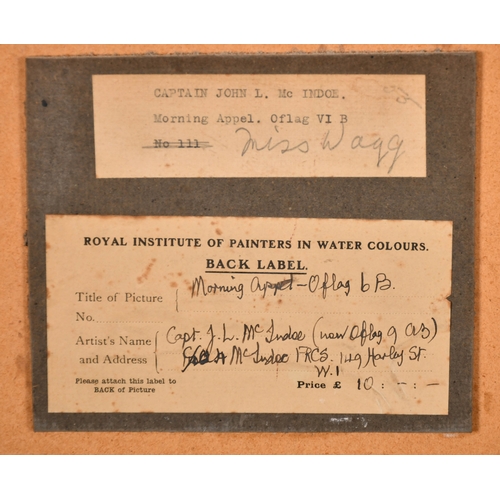 CAPTAIN JOHN L. Mc INDOE.
Morning Appel. Oflag VI B
No 111
Miss Wagg
ROYAL INSTITUTE OF PAINTERS IN WATER COLOURS.
BACK LABEL.
Title of Picture
Morning Appel - Oflag 6 B.
No.
Artist's Name
and Address
Capt. J. L. McIndoe (now Oflag 9 A3)
McIndoe FRCS. 149 Harley St.
W.1
Please attach this label to
BACK of Picture
Price £ 10 : - : -